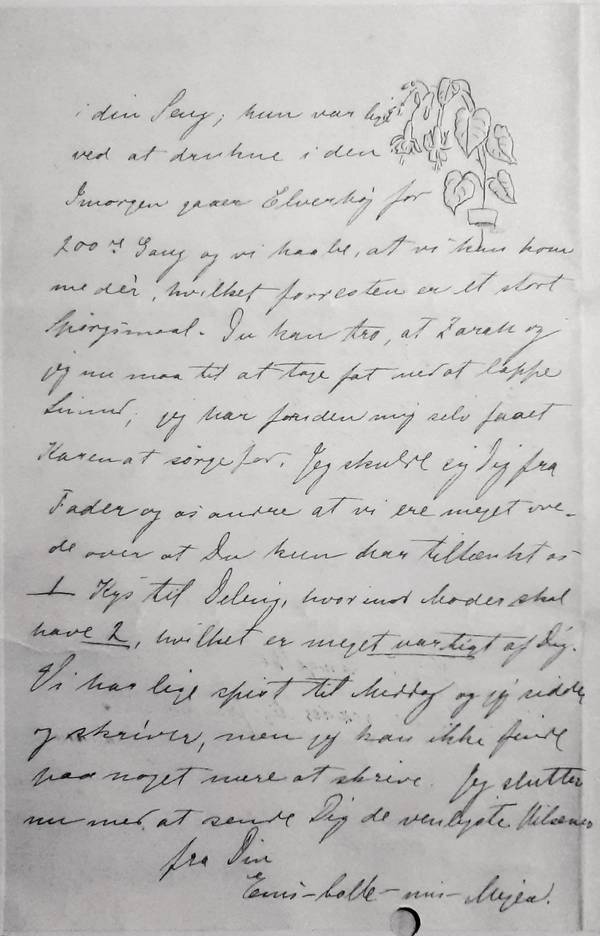 i din Seng; hun var lige
ved at drukne i den
Imorgen gaaer Elverhøj for
200de Gang og vi haabe, at vi kan kom
me dèr, hvilket forresten er et stort
Spørgsmaal. Du kan tro, at Zarah og
jeg nu maa til at tage fat ved at lappe
jeg har foruden mig selv faaet
Karen at sørge for. Jeg skulde sig Dig fra
Fader og os andre at vi ere meget vre-
de over at Du kun har tiltænkt os
1 Kys til Deling, hvorimod Moder skal
have 2, hvilket er meget uartigt af Dig.
Vi har lige spist til Middag og jeg sidder
og skriver, men jeg kan ikke finde
paa noget mere at skrive. Jeg slutter
nu med at sende Dig de venligste Hilsener
fra Din